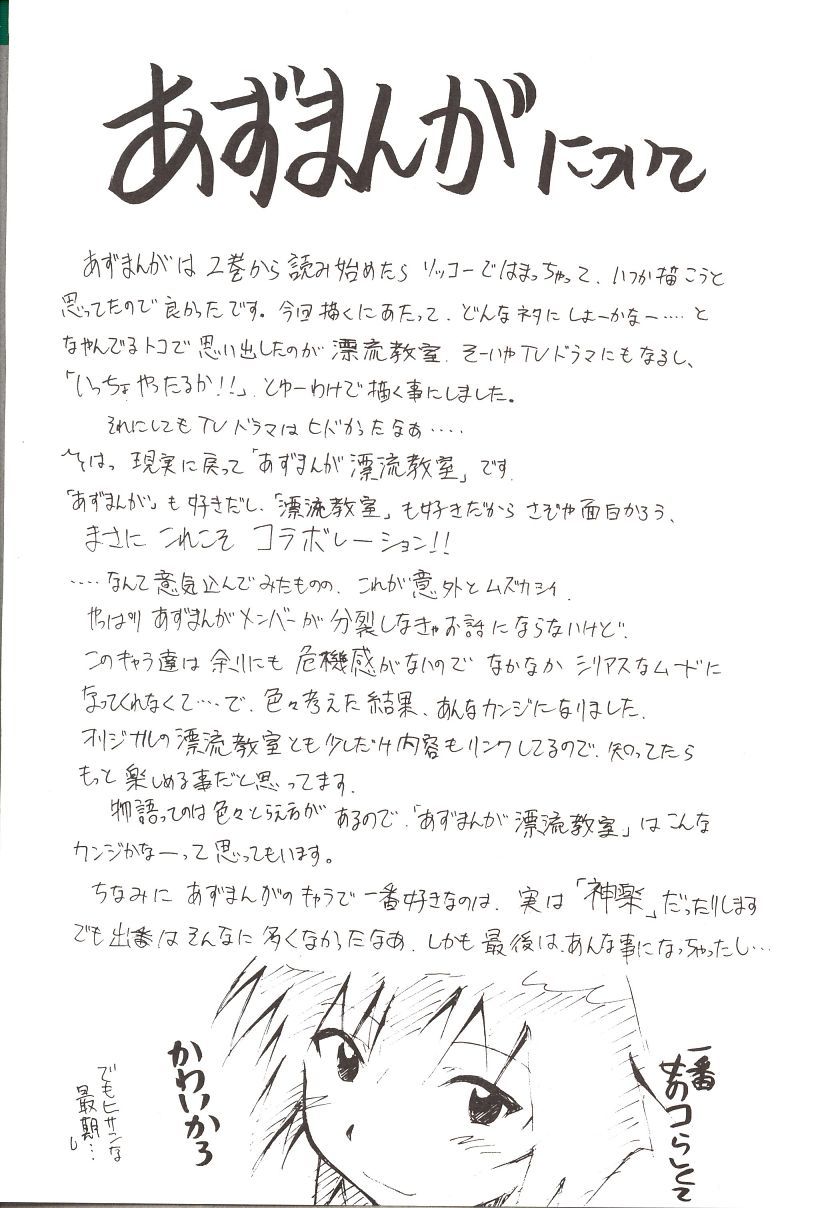 あずまんがについて
あずまんがは2巻から読み始めたらソッコーではまっちゃって、いつか描こうと
思ってたので良かったです。今回描くにあたって、どんなネタにしよーかなー‥‥と
なやんでるトコで思い出したのが漂流教室、そーいやTVドラマにもなるし、
「いっちょやったるか!!」とゆーわけで描く事にしました。
それにしてもTVドラマはヒドかったなぁ‥‥
現実に戻って「あずまんが漂流教室」です。
「あずまんが」も好きだし、「漂流教室」も好きだからさぞや面白かろう、
まさにこれこそコラボレーション!!
‥‥なんて意気込んでみたものの、これが意外とムズカシイ。
やっぱりあずまんがメンバーが分裂しなきゃお話にならないけど、
このキャラ達は余りにも危機感がないのでなかなかシリアスなムードに
なってくれなくて‥‥で、色々考えた結果、あんなカンジになりました。
オリジナルの漂流教室とも少しだけ内容もリンクしてるので、知ってたら
もっと楽しめる事だと思ってます。
物語ってのは色々とらえ方があるので、「あずまんが漂流教室」はこんな
カンジかなーって思ってもいます。
ちなみにあずまんがのキャラで一番好きなのは、実は「神楽」だったりします
でも出番はそんなに多くなかったなあ、しかも最後は、あんな事になっちゃったし…
一番
女のコらしくて
かわいかろ
でもヒサンな
最期…し